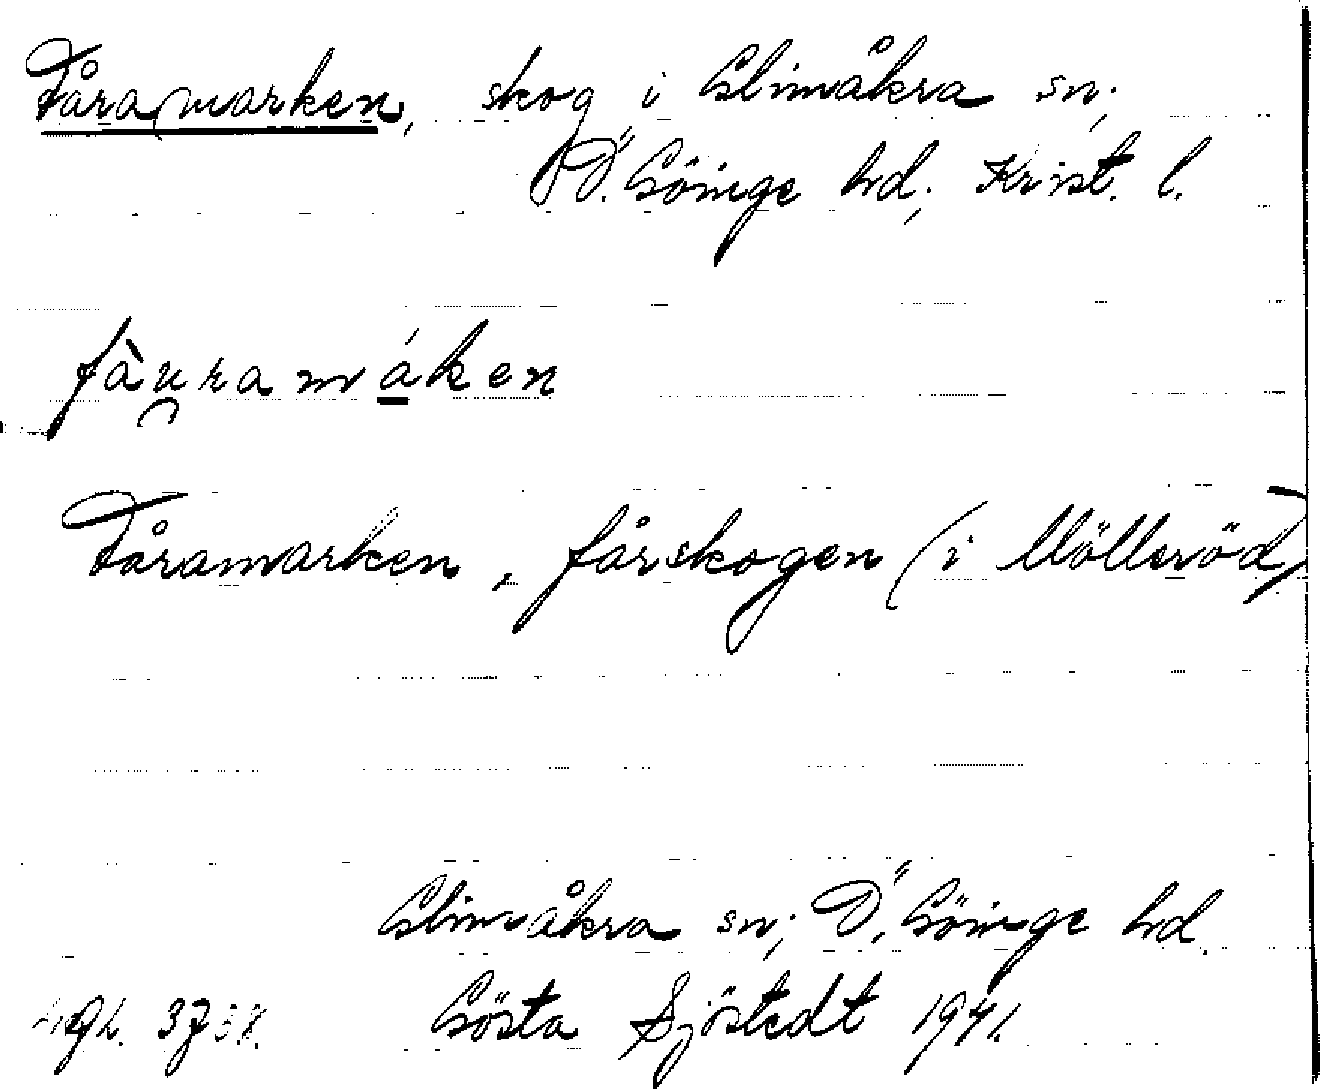 Fåramarken, skog i Glimåkra sn;
Ö. Göinge hd; Krist. l.
fàu̯ramáken
Fåramarken, fårskogen (i Mölleröd)
Glimåkra sn; Ö. Göinge hd.
Gösta Sjöstedt 1941.